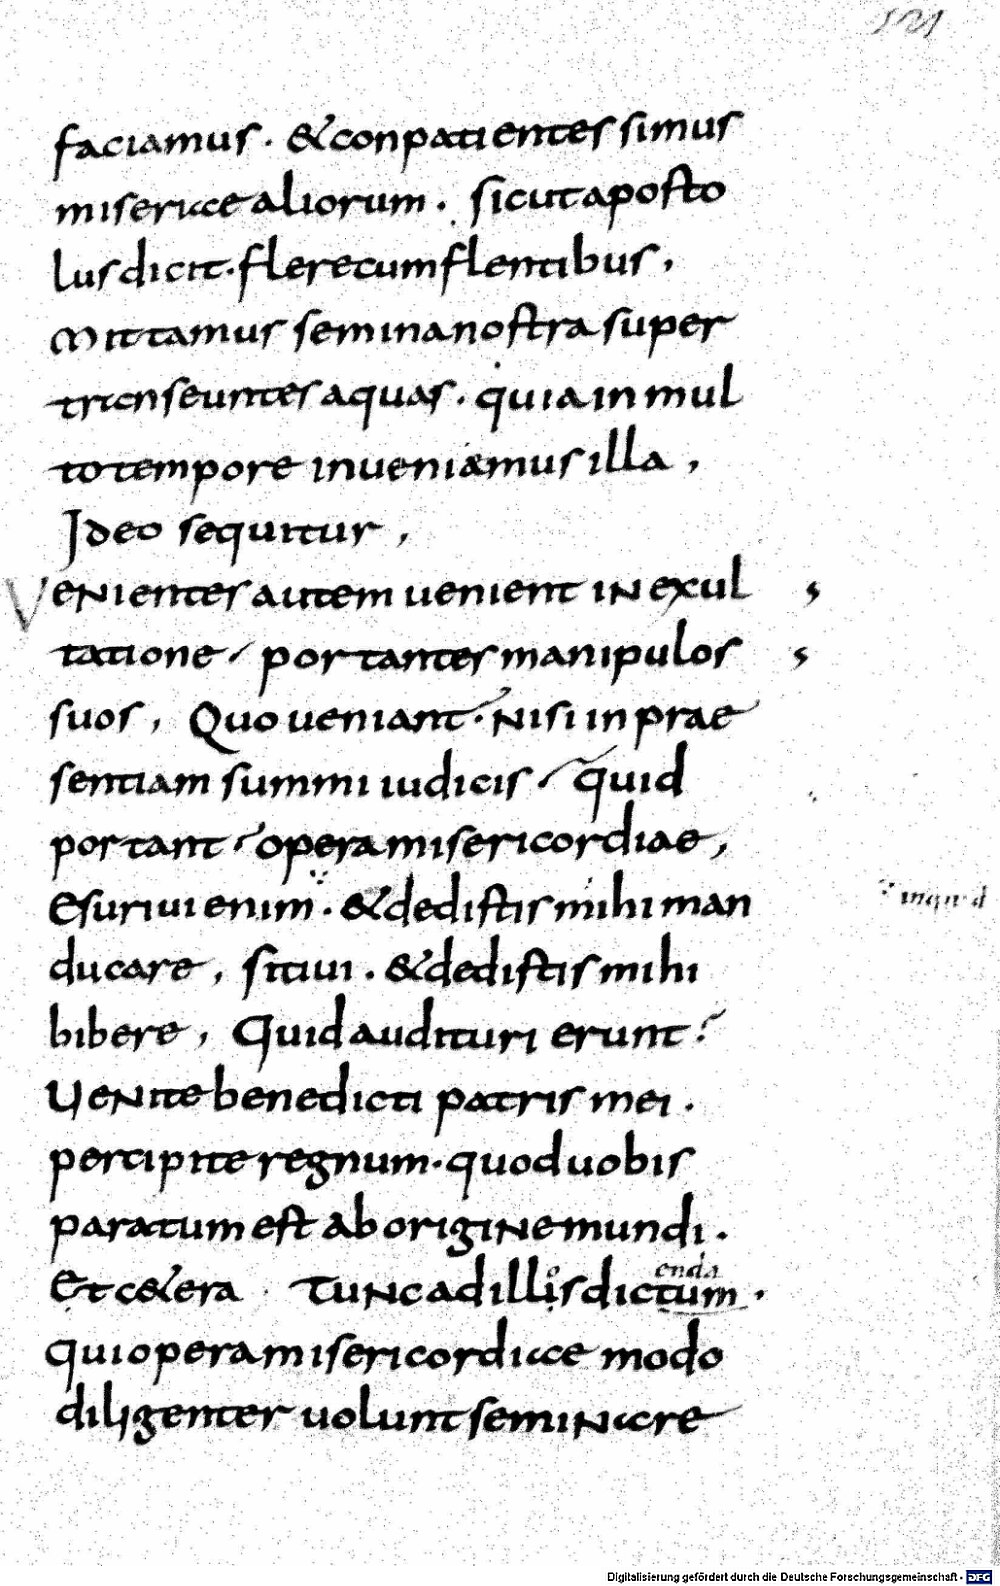 faciamus · & conpatientes simus
miseriae aliorum . sicut aposto
lus dicit · flere cum flentibus ,
Mittamus semina nostra super
transeuntes aquas · quia in mul
to tempore inueniamus illa ,
Ideo sequitur ,
Venientes autem uenient in exul
tatione / portantes manipulos
suos , Quo ueniant · Nisi in prae
sentiam summi iudicis / quid
portant / opera misericordiae ,
Esuriui enim · & dedistis mihi man inquid
ducare , sitiui . & dedistis mihi
bibere , Quid audituri erunt ?
Uenite benedicti patris mei .
percipite regnum · quod uobis
paratum est ab origine mundi .
enda
Et cetera Tunc ad illos dictum .
qui opera misericordiae modo
diligenter uolunt seminare
Digitalisierung gefördert durch die Deutsche Forschungsgemeinschaft - DFG